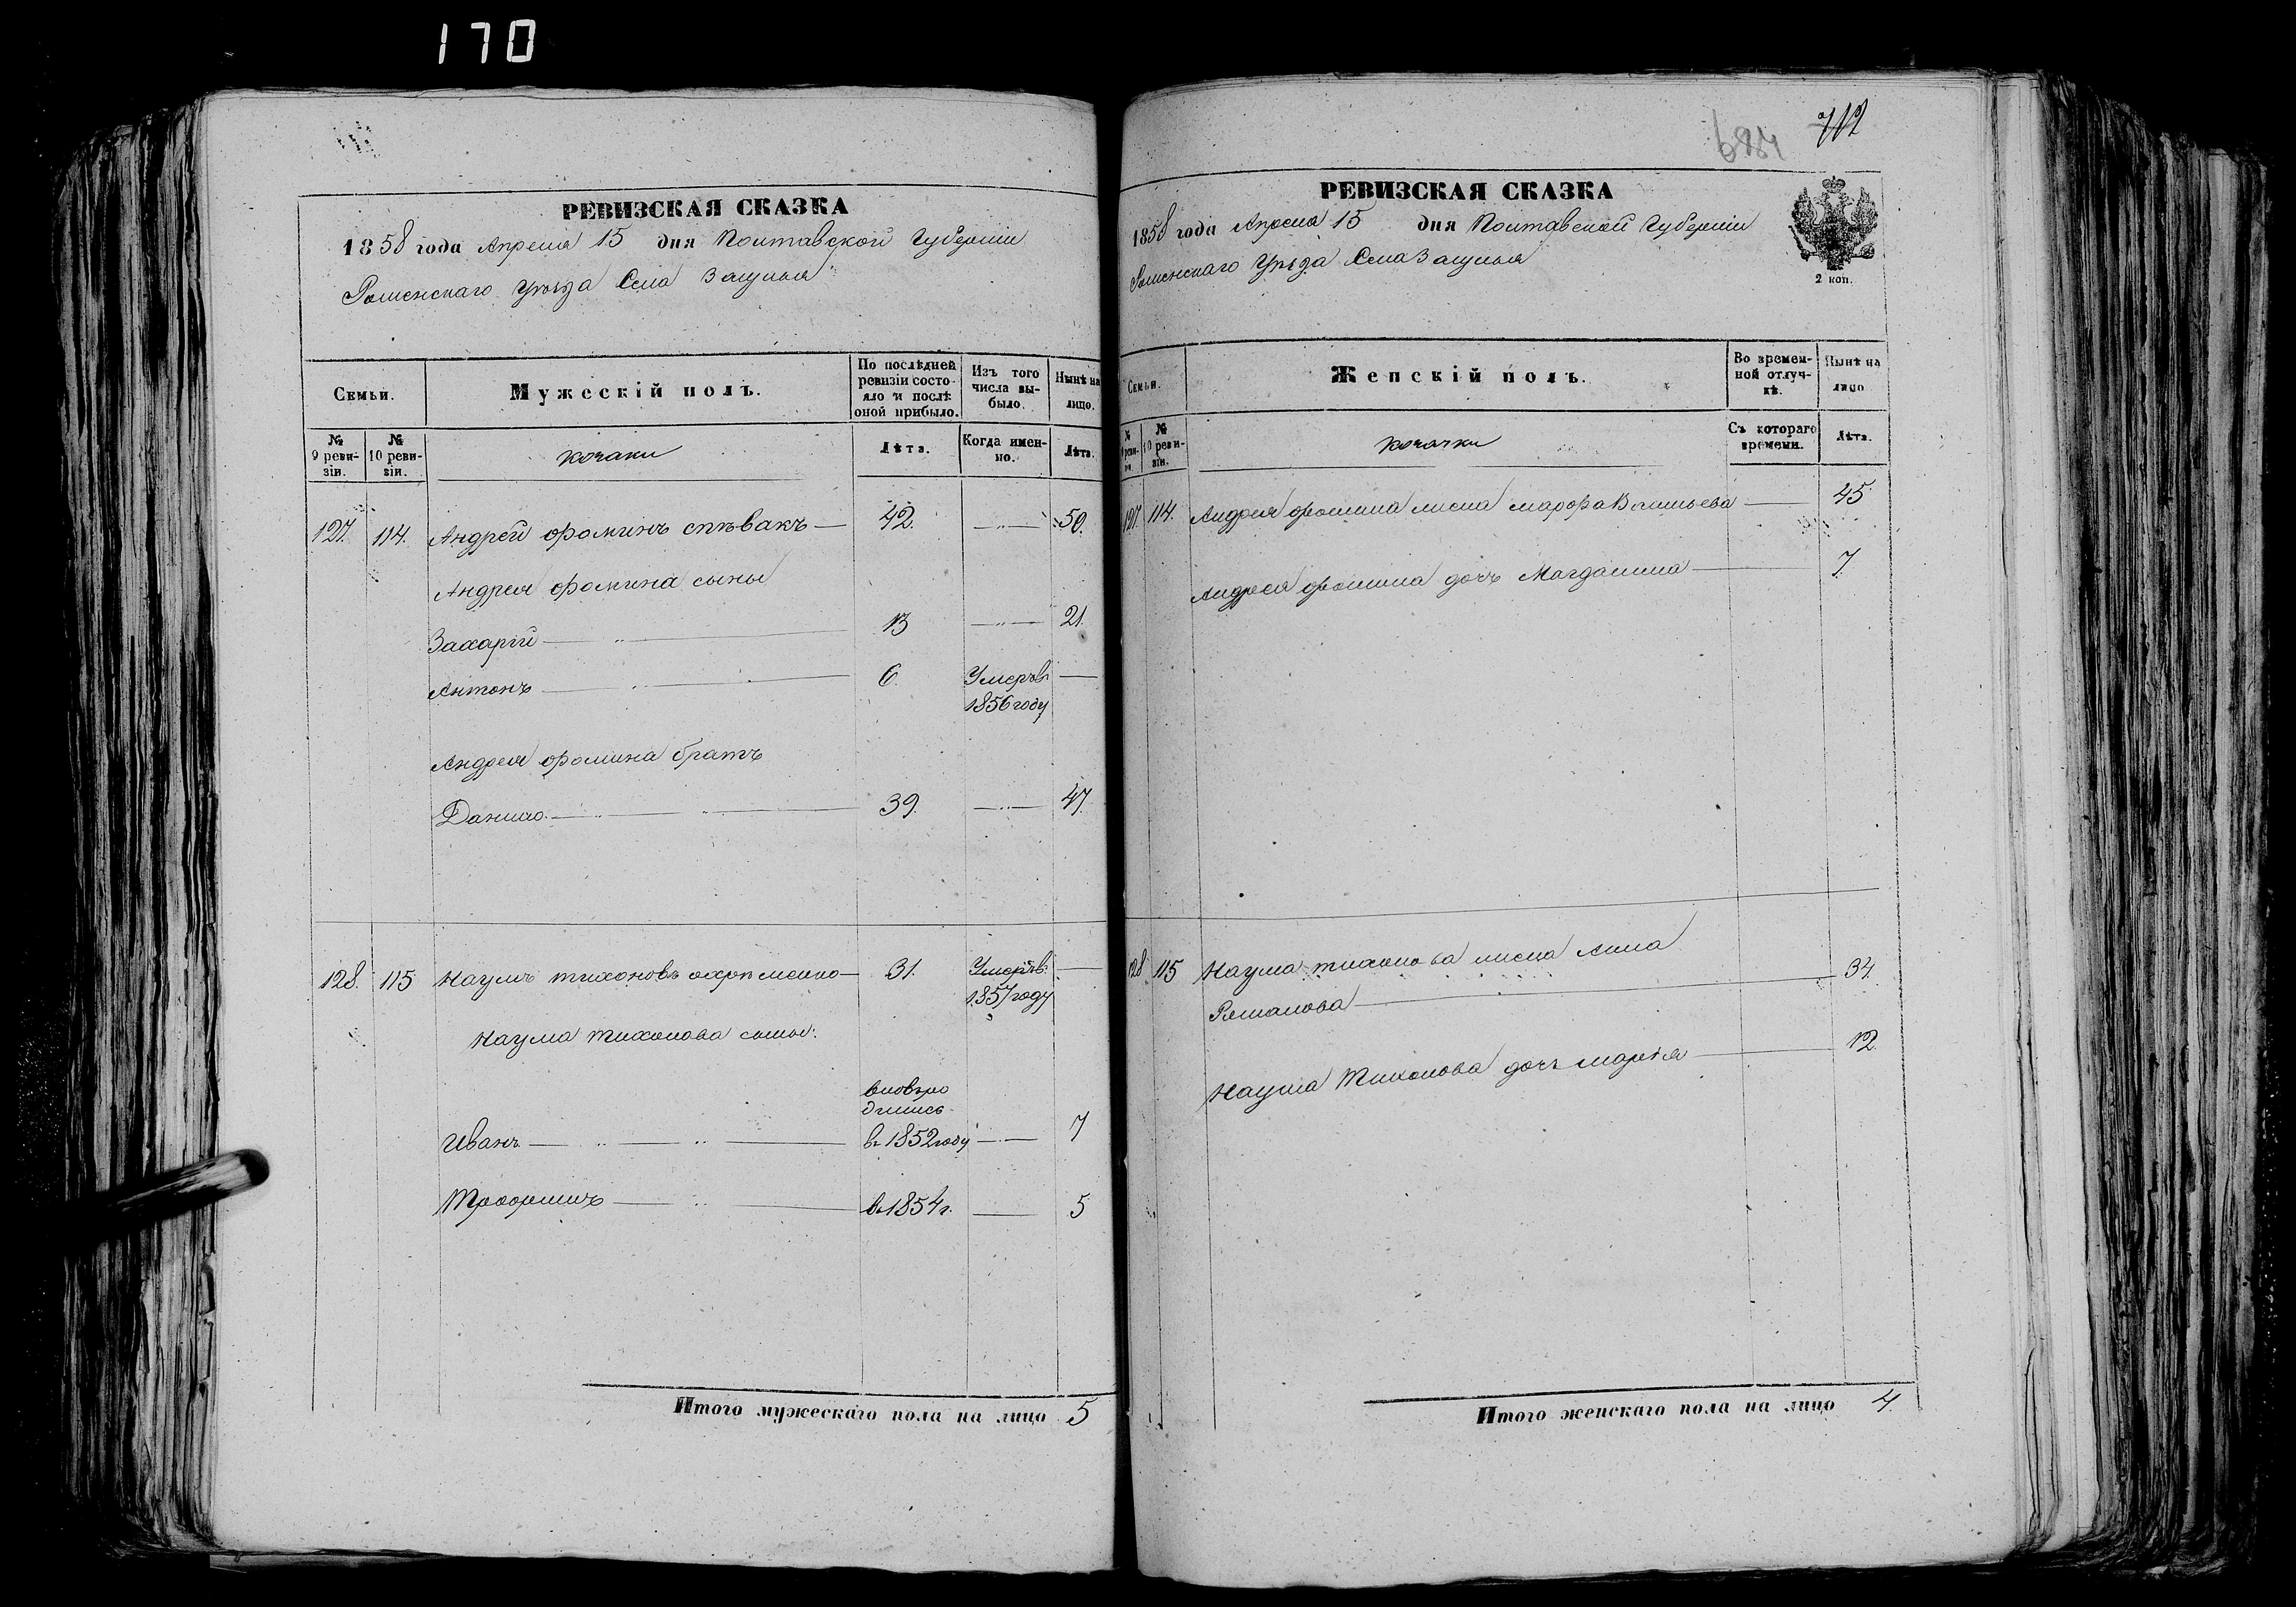 170
РЕВИЗСКАЯ СКАЗКА
1858 года Апреля 15 дня Полтавской Губерніи
Роменскаго Уѣзда Села
Семьи.
Мужескій полъ.
По послѣдней ревизіи состояло и послѣ оной прибыло.
Изъ того числа выбыло.
Нынѣ на лицо.
№ 9 ревизіи.
№ 10 ревизіи.
козаки
Лѣта.
Когда именно.
Лѣта.
127. 114. Андрей Фоминъ Спѣвакъ 42. 50.
Андрея Фомина сыны
Захарій 13 21.
Антонъ 6. Умеръ в
1856 году
Андрея Фомина братъ
Данило 39. 47.
128. 115 Наумъ Тихоновъ 31. Умеръ в.
1857 году
Наума Тихонова сыны:
вновьро
дились
Иванъ в 1852 году 7
в 1854 г. 5
Итого мужескаго пола на лицо 5
684 712
РЕВИЗСКАЯ СКАЗКА
1858 года Апреля 15 дня Полтавской Губерніи
Роменскаго Уѣзда Села
2 коп.
Семьи.
Женскій полъ.
Во временной отлучкѣ.
Нынѣ на лицо
№ 9 ревизіи.
№ 10 ревизіи.
козачки
Съ котораго времени.
Лѣта.
127. 114. Андрея Фомина жена Марфа 45
Андрея Фомина дочь Магдалина 7.
128 115 Наума Тихонова жена Анна
34.
Наума Тихонова дочь Марія 12.
Итого женскаго пола на лицо 4.